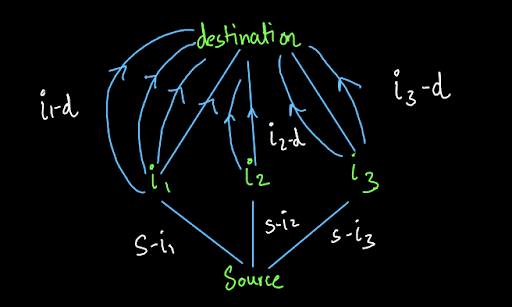 destination
i1-d
i2-d
i3-d
i1
i2
i3
S-i1
S-i2
S-i3
Source